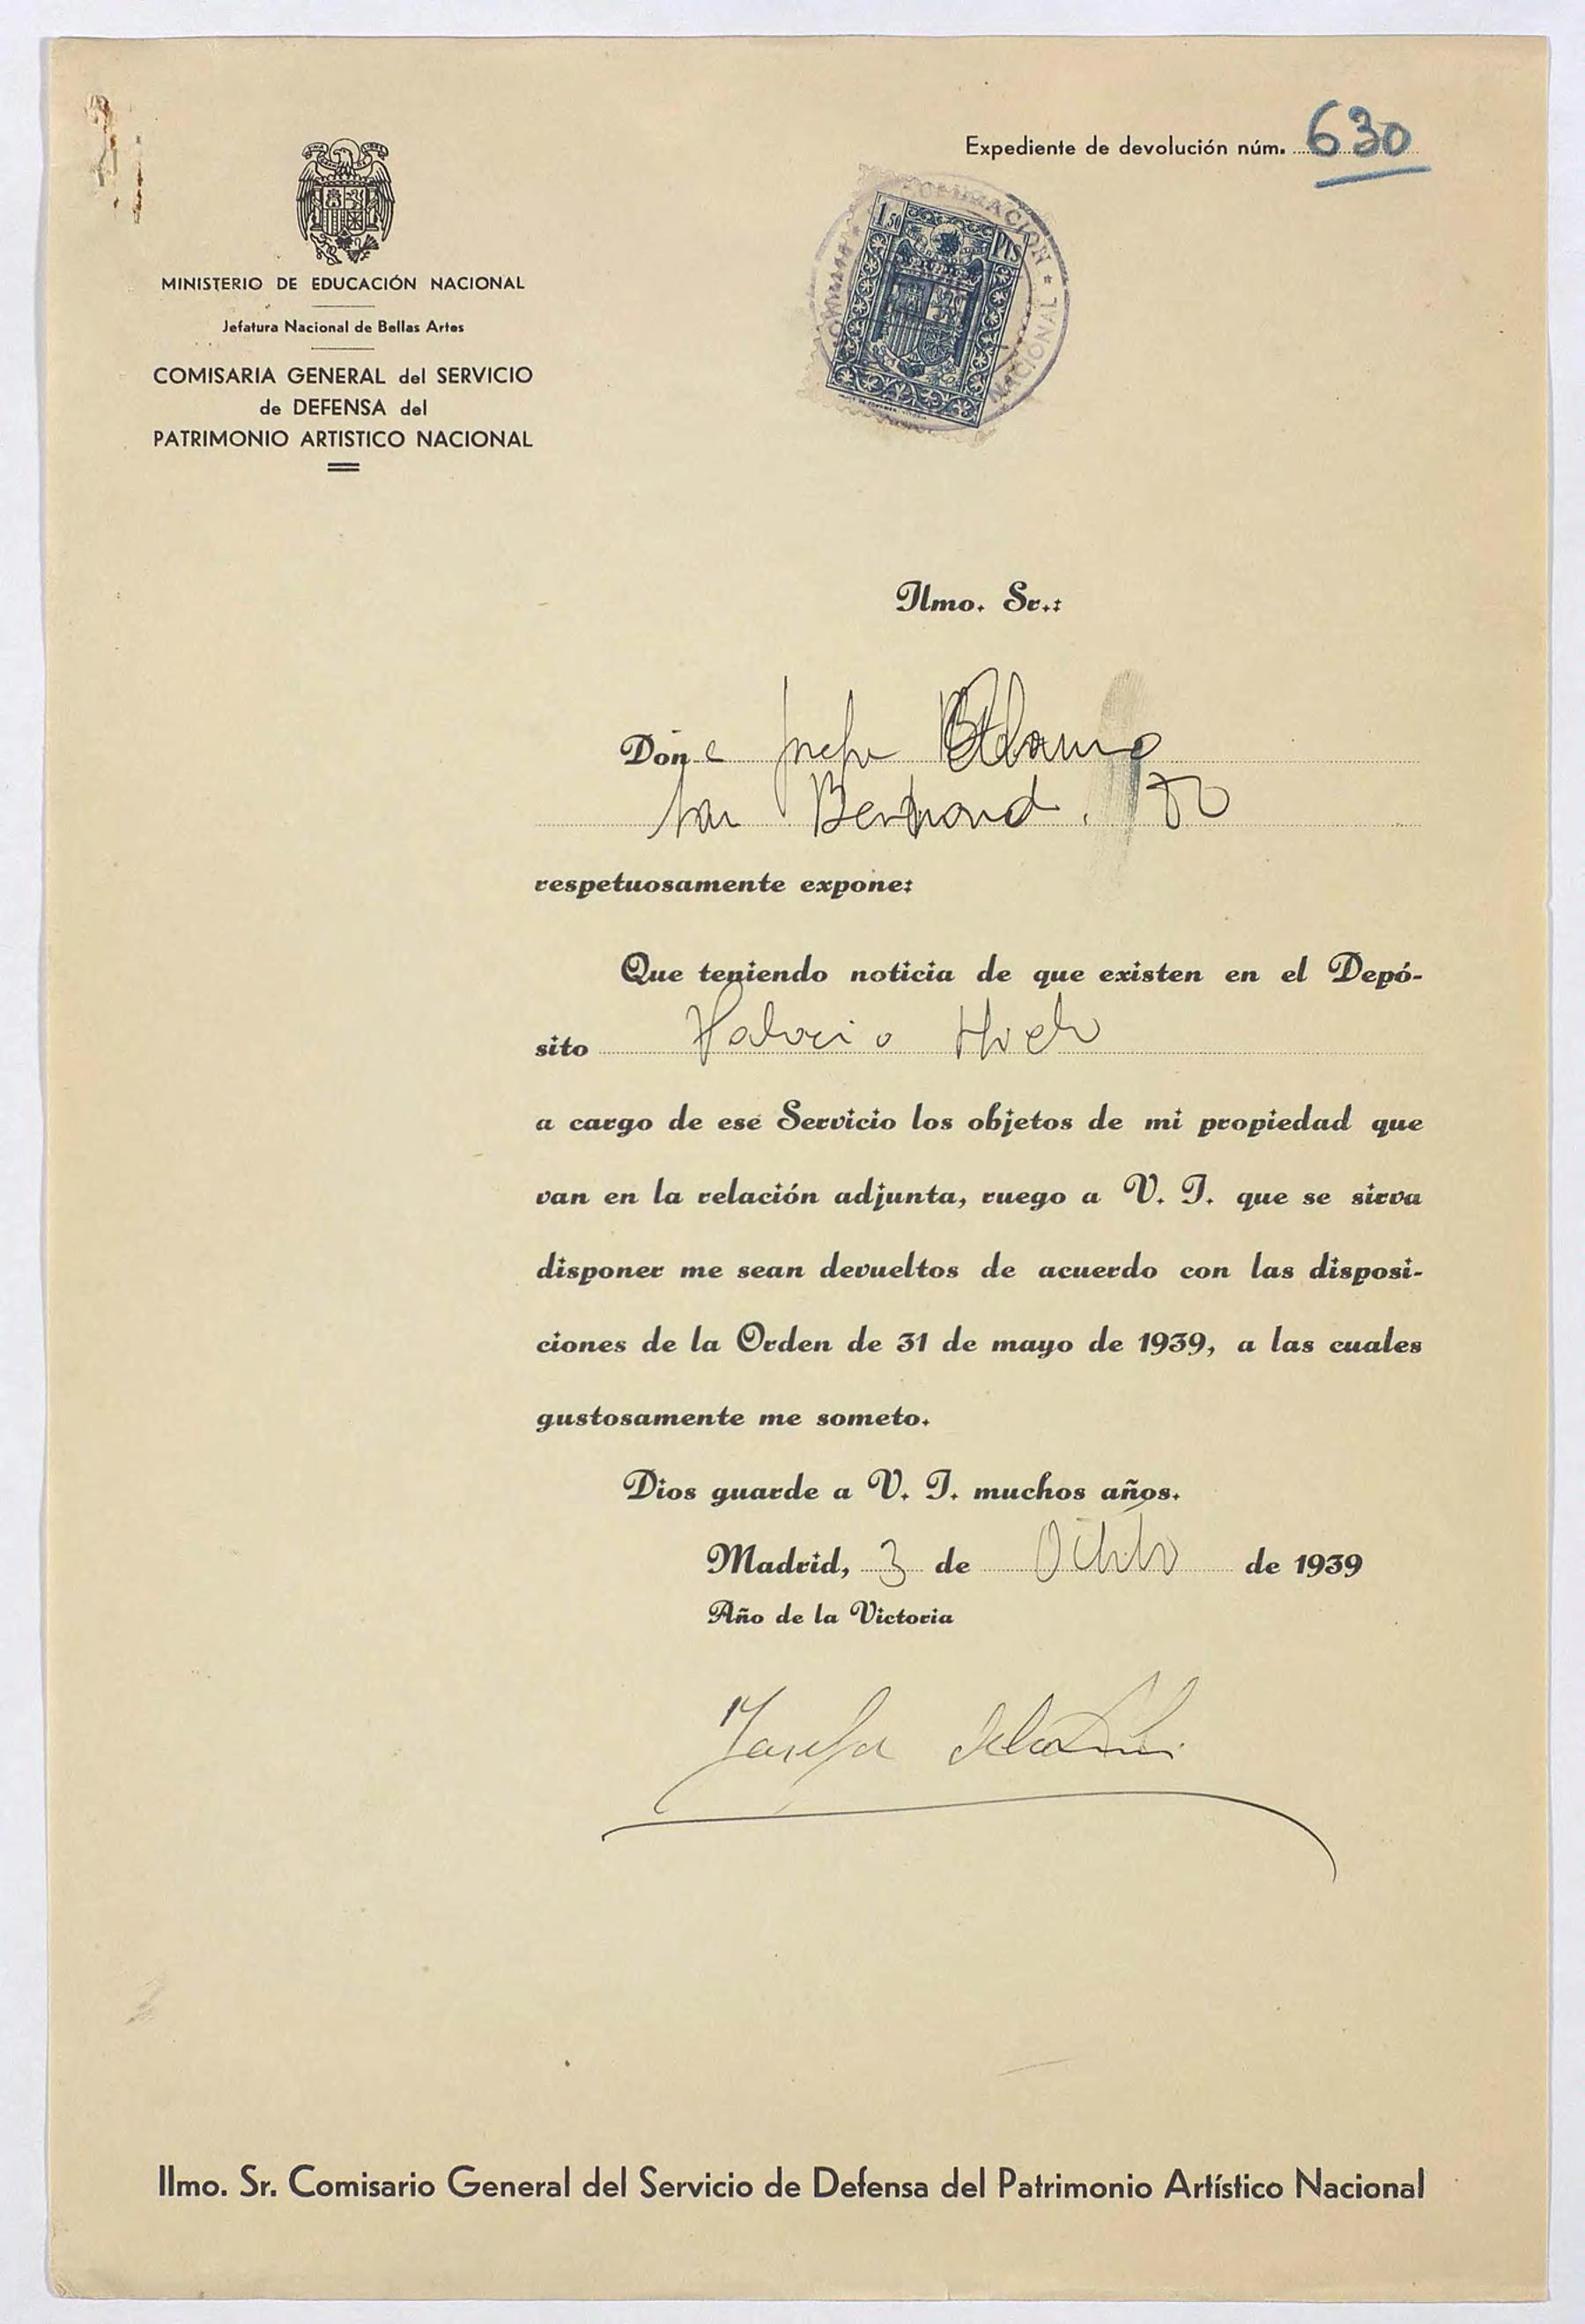 Expediente de devolución núm. 630
MINISTERIO DE EDUCACIÓN NACIONAL
Jefatura Nacional de Bellas Artes
COMISARIA GENERAL del SERVICIO
de DEFENSA del
PATRIMONIO ARTISTICO NACIONAL
1,50 PTS
NACIONAL
Ilmo. Sr.:
Don
San Bernardo
respetuosamente expone:
Que teniendo noticia de que existen en el Depó-
sito Palacio Hielo
a cargo de ese Servicio los objetos de mi propiedad que
van en la relación adjunta, ruego a V. I. que se sirva
disponer me sean devueltos de acuerdo con las disposi-
ciones de la Orden de 31 de mayo de 1939, a las cuales
gustosamente me someto.
Dios guarde a V. I. muchos años.
Madrid, 3 de Octubre de 1939
Año de la Victoria
Josefa
Ilmo. Sr. Comisario General del Servicio de Defensa del Patrimonio Artístico Nacional